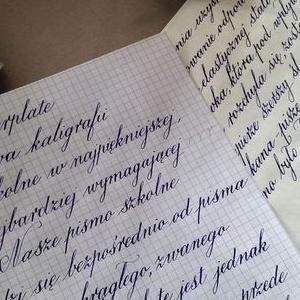 rplate
wa kaligrafii
kolne w najpiękniejszej,
jbardziej wymagającej
Nasze pismo szkolne
dzi się bezpośrednio od pisma
brągłego, zwanego
te jest jednak
przede
nia uzys
owanie odpow
elastycznej stal
oka, która pod wpływ
rozchyla się, zost
mierze szerszy śl
kana pisz
no było